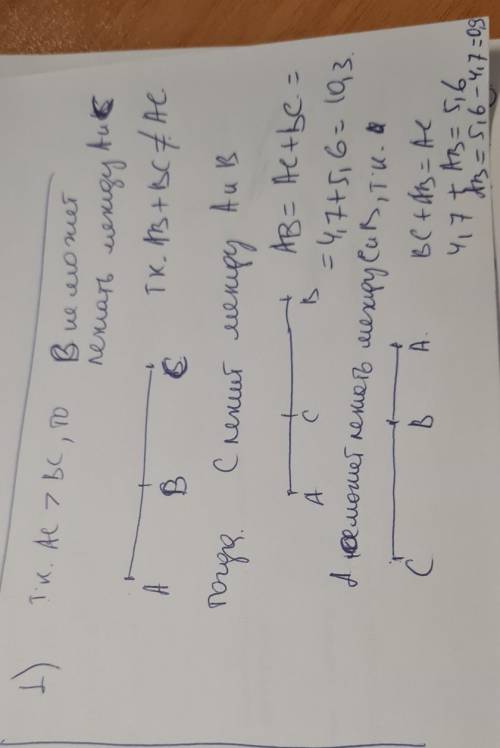 1)
т.к. AC > BC, то B не может
лежать между A и C
т.к. AB + BC ≠ AC
A B C
тогда. C лежит между A и B
A C B
AB = AC + BC =
= 4,7 + 5,6 = 10,3.
A может лежать между C и B, т.к.
C B A.
BC + AB = AC
4,7 + AB = 5,6
AB = 5,6 - 4,7 = 0,9